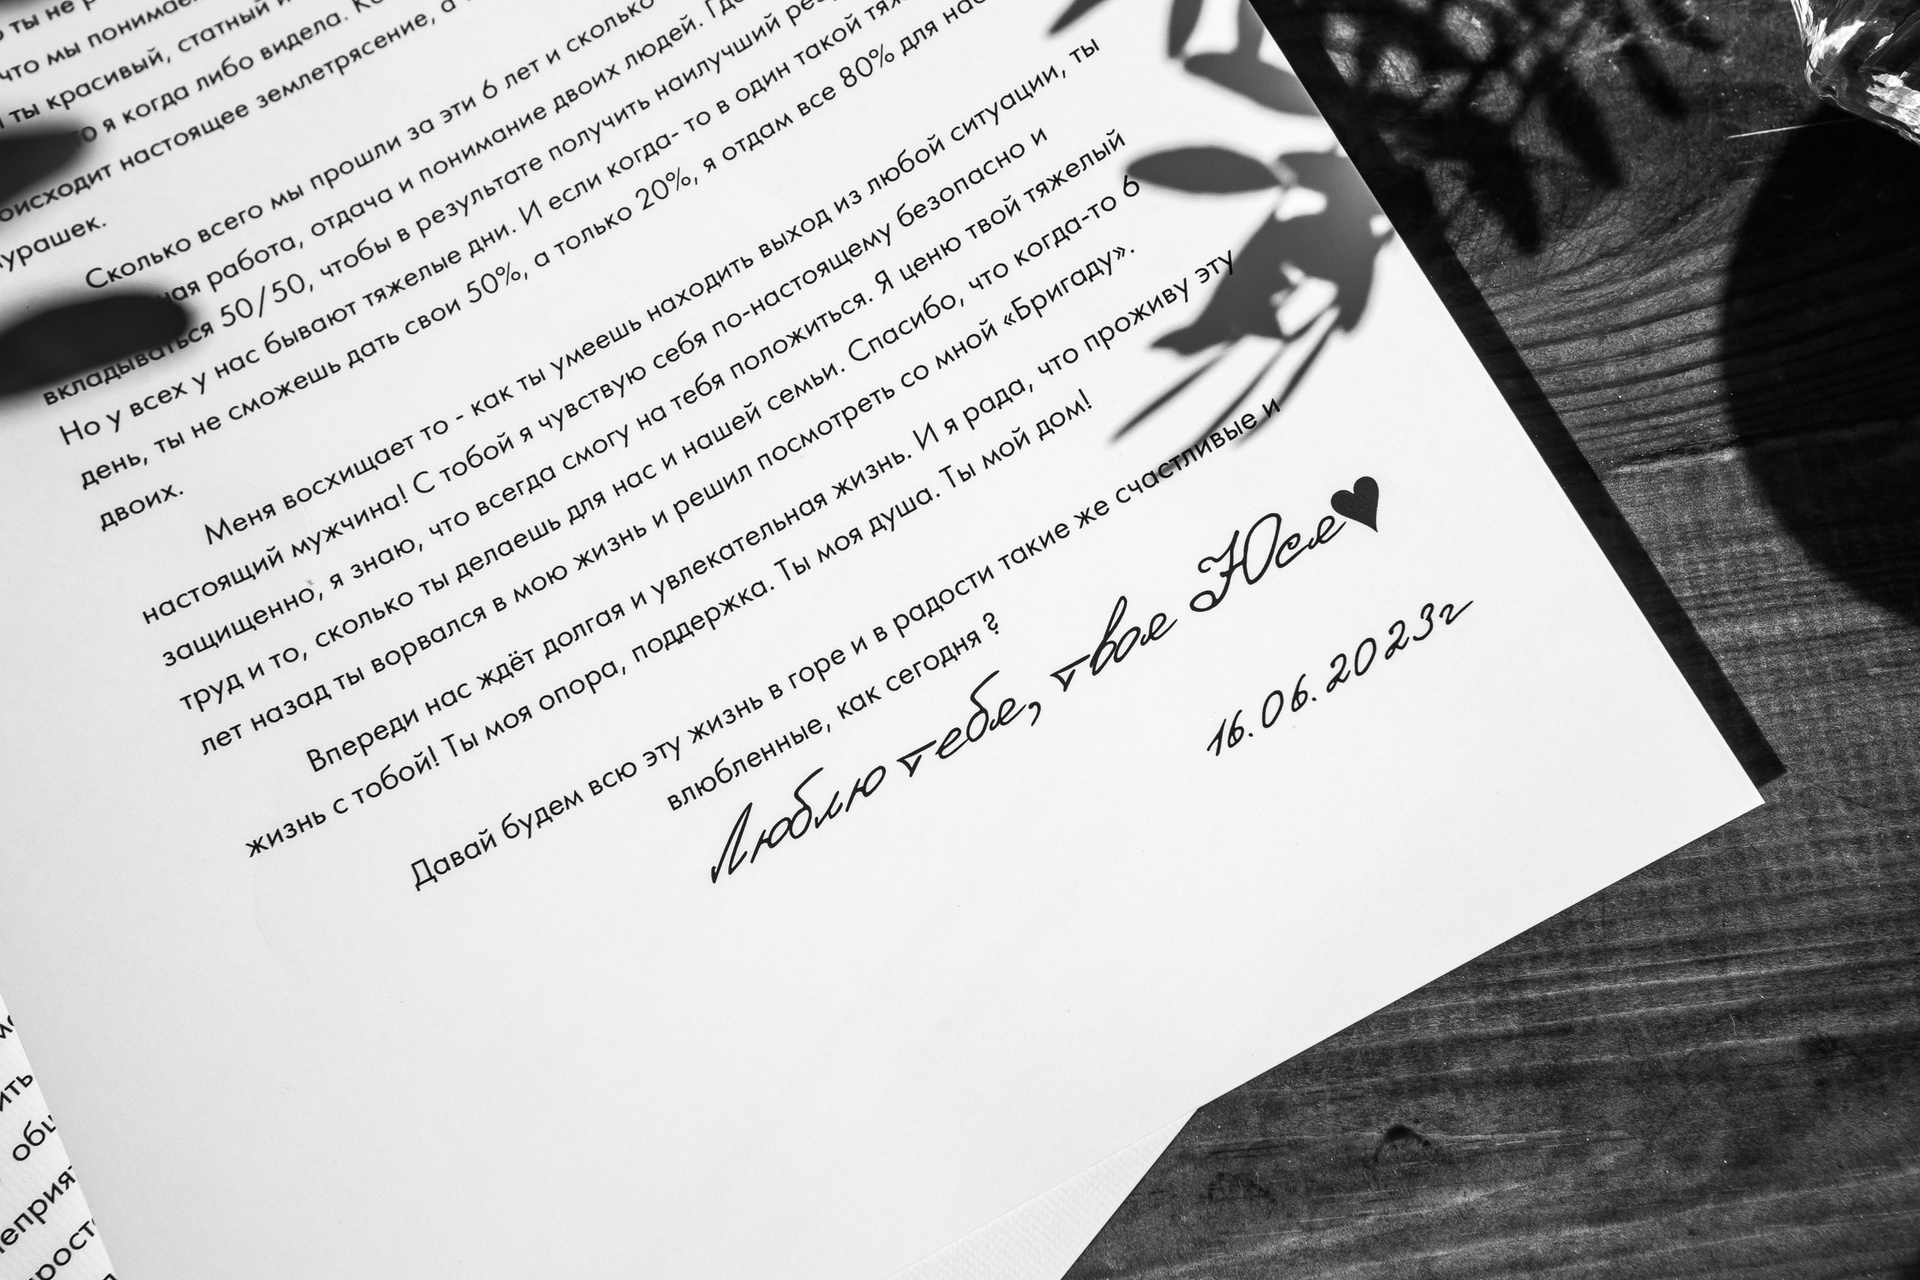 ты не
что мы понимаем
ты красивый, статный и
я когда либо видела.
настоящее землетрясение, а
Сколько всего мы прошли за эти 6 лет и сколько
работа, отдача и понимание двоих людей.
вкладываться 50/50, чтобы в результате получить наилучший
Но у всех у нас бывают тяжелые дни. И если когда- то в один такой
день, ты не сможешь дать свои 50%, а только 20%, я отдам все 80% для
двоих.
Меня восхищает то - как ты умеешь находить выход из любой ситуации, ты
настоящий мужчина! С тобой я чувствую себя по-настоящему безопасно и
защищенно, я знаю, что всегда смогу на тебя положиться. Я ценю твой тяжелый
труд и то, сколько ты делаешь для нас и нашей семьи. Спасибо, что когда-то 6
лет назад ты ворвался в мою жизнь и решил посмотреть со мной «Бригаду».
Впереди нас ждёт долгая и увлекательная жизнь. И я рада, что проживу эту
жизнь с тобой! Ты моя опора, поддержка. Ты моя душа. Ты мой дом!
Давай будем всю эту жизнь в горе и в радости такие же счастливые и
влюбленные, как сегодня ?
Люблю тебя, твоя Юся♥
16.06.2023г